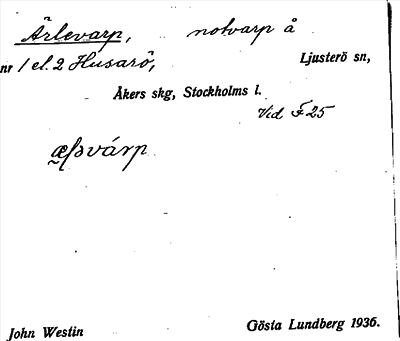 Ärlevarp, notvarp å
nr 1 el. 2 Husarö, Ljusterö sn,
Åkers skg, Stockholms l.
Vid F 25
John Westin Gösta Lundberg 1936.